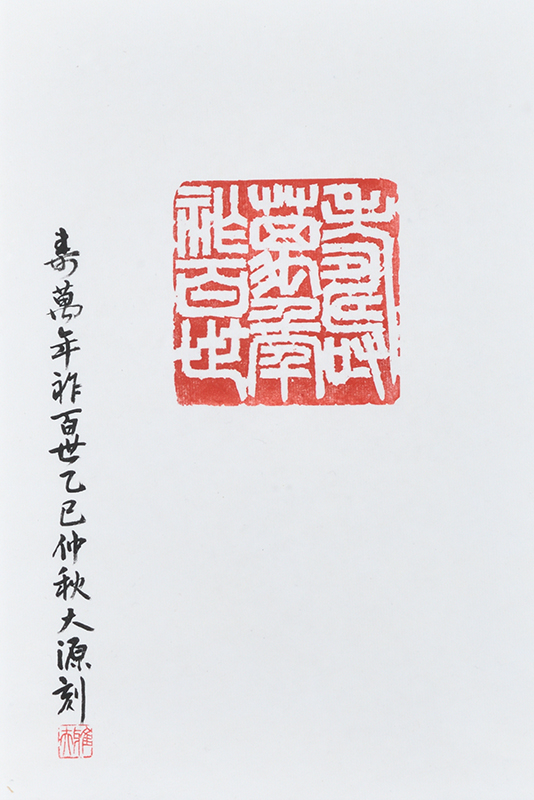 壽萬年祚百世
壽萬年祚百世乙巳仲秋大源刻